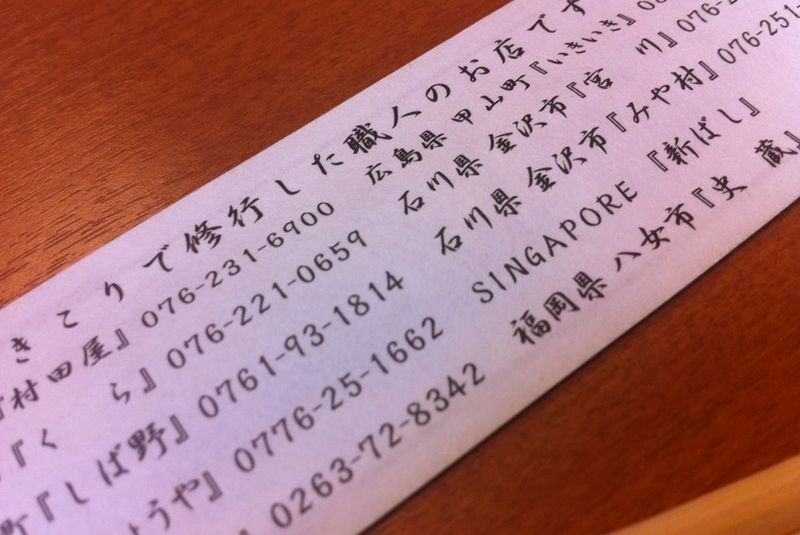 きこりで修行した職人のお店です
村田屋』076-231-6900 広島県 甲山町『いきいき』08
『く ら』076-221-0659 石川県 金沢市『宮 川』076-2
町『しば野』0761-93-1814 石川県 金沢市『みや村』076-251-
うや』0776-25-1662 SINGAPORE『新ばし』
』0263-72-8342 福岡県 八女市『史 蔵』